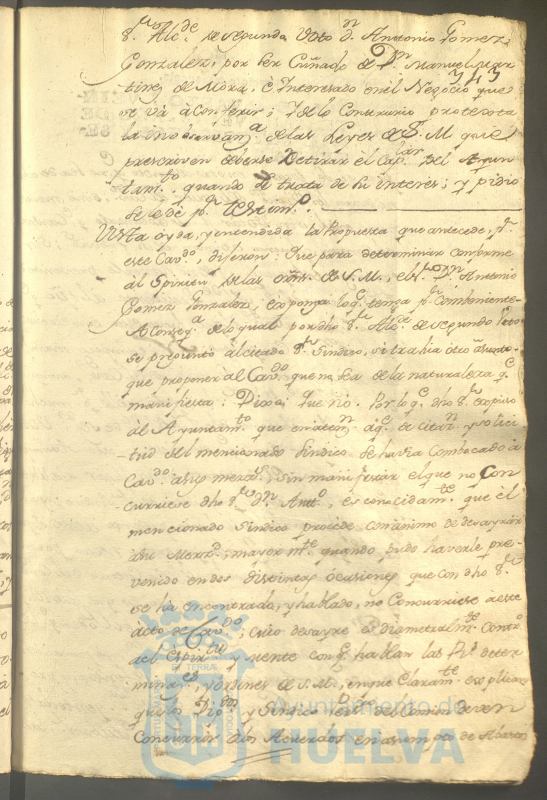 Sr. Alcde. de segundo Voto Dn. Antonio Gomez
Gonzalez, por ser Cuñado de Dn. Manuel Mar
343
tinez de Mora, é Interesado en el Negocio que
se vá á conferir; i de lo Contrario protexta
la inobservanza. de las Leyes de S. M. que
prescriven deberse Retirar el Capitular del Ayun
tamto. quando se trata de su interes; y pidio
se le dé pr. testimo.
Vista oyda, y entendida la Propuesta que antecede, pr.
este Cavdo., dijeron: Que para determinar conforme
al Spiritu de las ordns. de S. M., el Sr. Dn. Antonio
Gomez Gonzalez, exponga loqe. tenga pr. combeniente
A conseqa. de lo qual por dho Sr. Alcde. de segundo Voto
se pregunto al citado Sr. Sindico, si trahia otro asunto
que proponer al Cavdo. que no sea de la naturaleza qe.
manifiesta: Dixo: Que no. Por lo qe. dho Sr. expuso
al Ayuntamto. que en atenn. áqe. á
tud del mencionado Sindico se havia combocado á
Cavdo. á su merzd., sin manifestar el que no Con
curriese dho Sr. Dn. Anto., es conocidamte. que el
mencionado Sindico procede con animo de desayrar
á su Merzd., mayormte. quando pudo haverle pre
venido en dos distintas ócasiones que con dho Sr.
se há encontrado, y hablado, no Concurriese á este
ácto de Cavdo.; cuio desayre es diametralmte. contro.
del Espiritu y mente con qe. hablan las Rs. deter
minaes. y ordenes de S. M., en que Claramte. explican
que los Dipdos. y Sindico Perso. del Comun deven
Concurrir á los Acuerdos en asumpto de Abastos
Ayuntamiento de
HUELVA